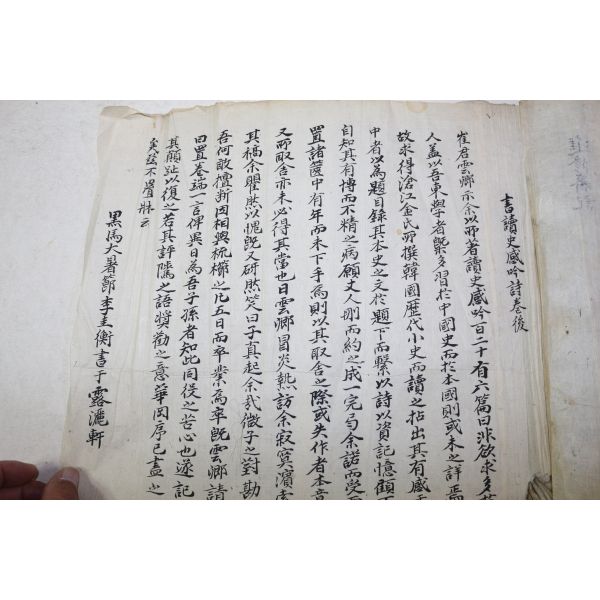 書讀史感吟詩卷後
崔君雲卿示余以所著讀史感吟百二十有六篇曰非欲求多於
人盖以吾東學者槩多習於中國史而於本國則或未之詳焉
故求得滄江金氏所撰韓國歷代小史而讀之拈出其有感
中者以為題目錄其本史之文於題下而繫以詩以資記憶顧
自知其有博而不精之病願丈人刪而約之成一完句余諾而受
置諸篋中有年而未下手焉則以其取舍之際或失作者本意
又所取舍亦未必得其當也日雲卿冒炎熱訪余寂寞濱索
其稿余瞿然以愧旣又研然笑曰子真起余哉微子之對勘
吾何敢擅斷因相與梳櫛之凡五日而卒業焉卒旣雲卿請
曰置卷端一言俾異日為吾子孫者知此同役之苦心也遂記
其顚趾以復之若其評騭之語獎勸之意華岡序已盡之
矣玆不疊牀云
黑馬大暑節李圭衡書于露瀼軒